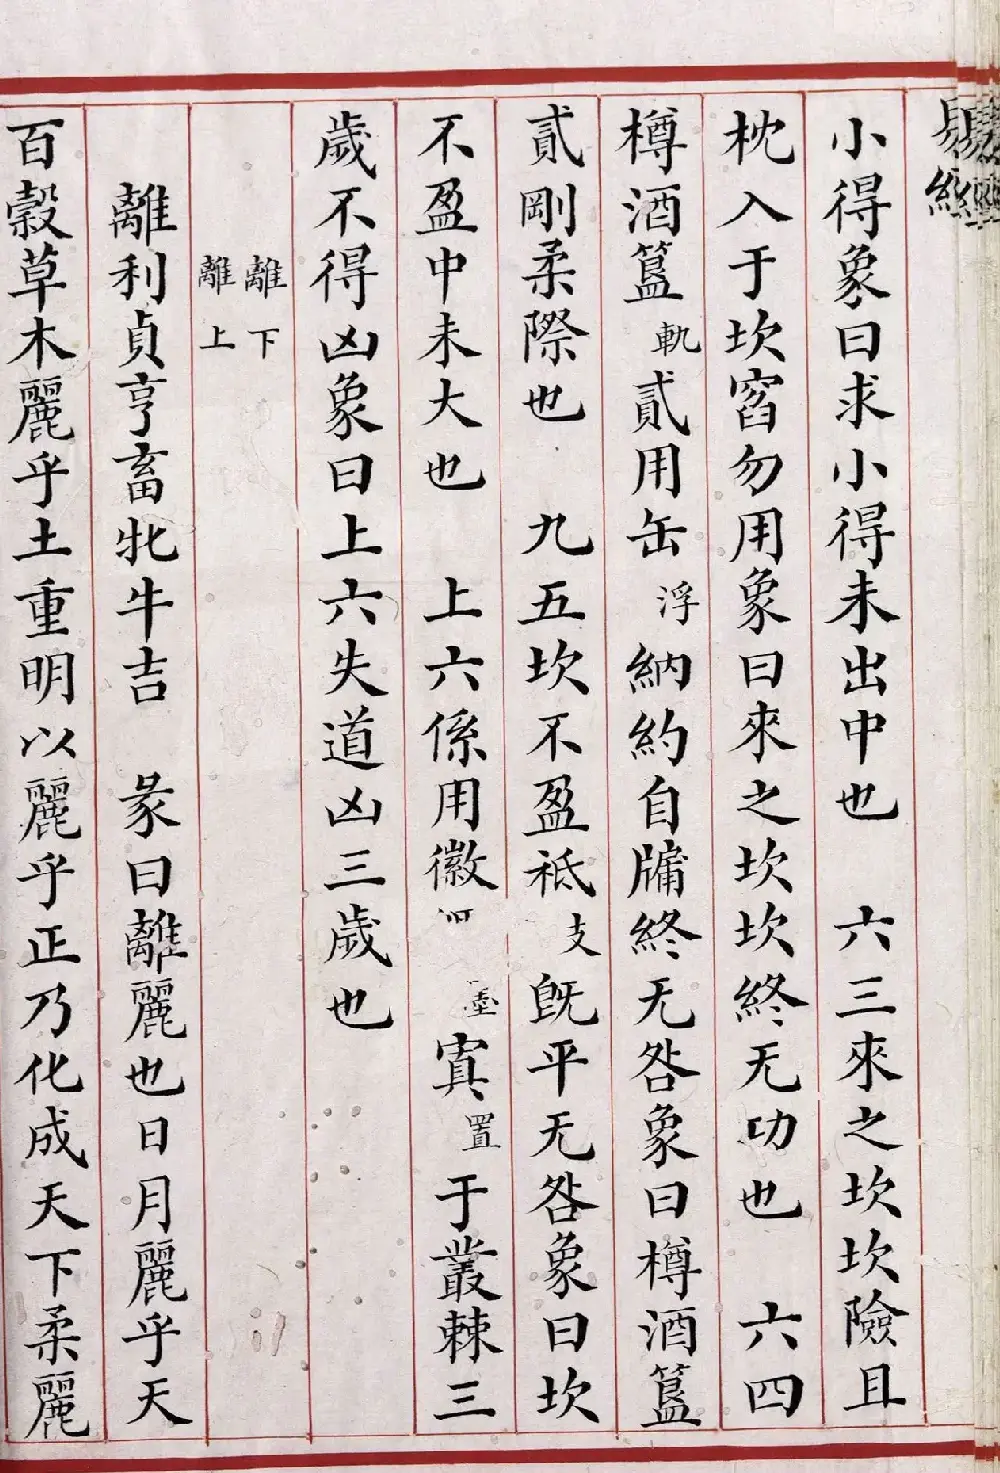 易經
小得象曰求小得未出中也　六三來之坎坎險且
枕入于坎窞勿用象曰來之坎坎終无功也　六四
樽酒簋軌貳用缶浮納約自牖終无咎象曰樽酒簋
貳剛柔際也　九五坎不盈祗支旣平无咎象曰坎
不盈中未大也　上六係用徽墨寘置于叢棘三
歲不得凶象曰上六失道凶三歲也
離下
離上
離利貞亨畜牝牛吉　彖曰離麗也日月麗乎天
百穀草木麗乎土重明以麗乎正乃化成天下柔麗